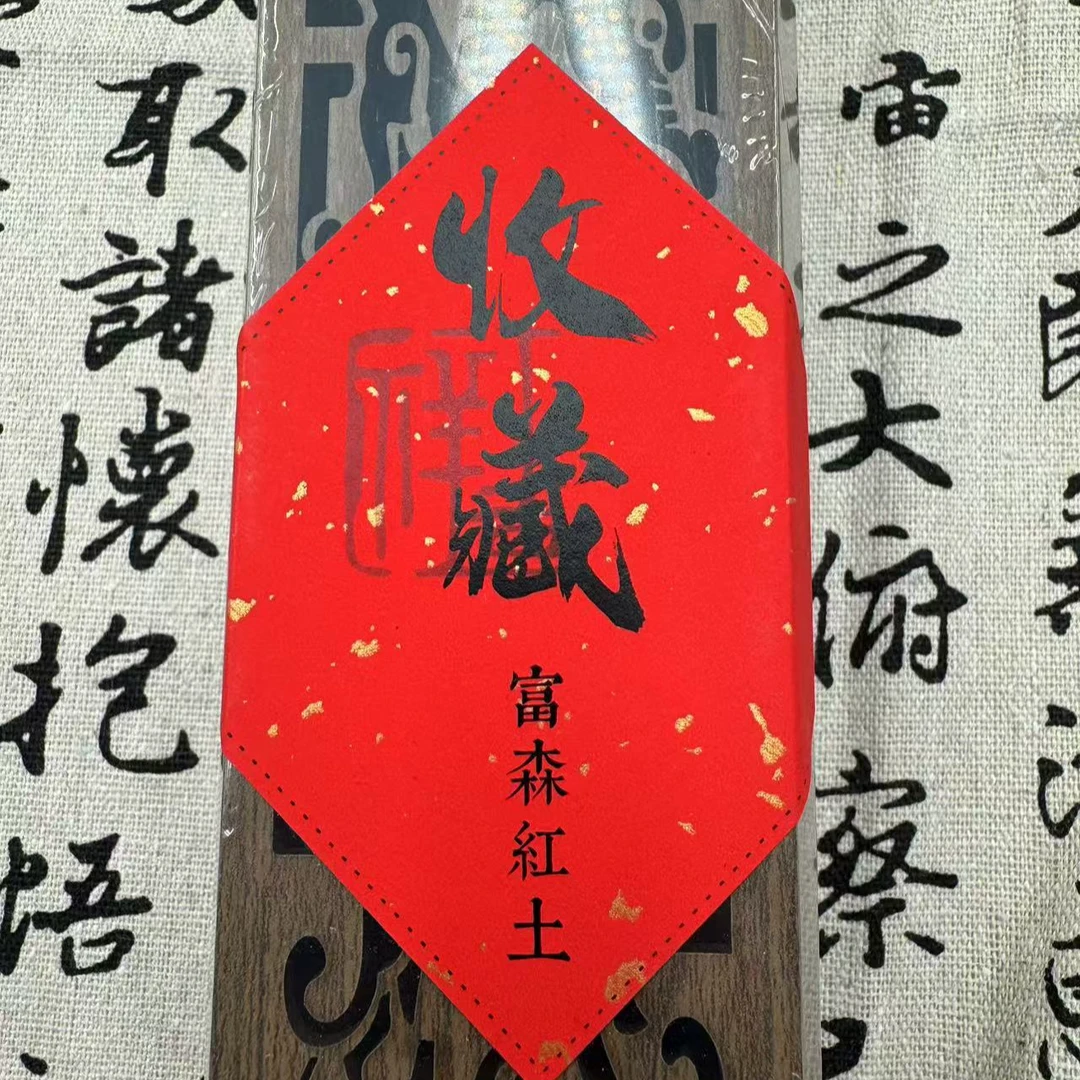 收藏
富森紅土
祥
宙
之大俯察
取諸懷抱悟